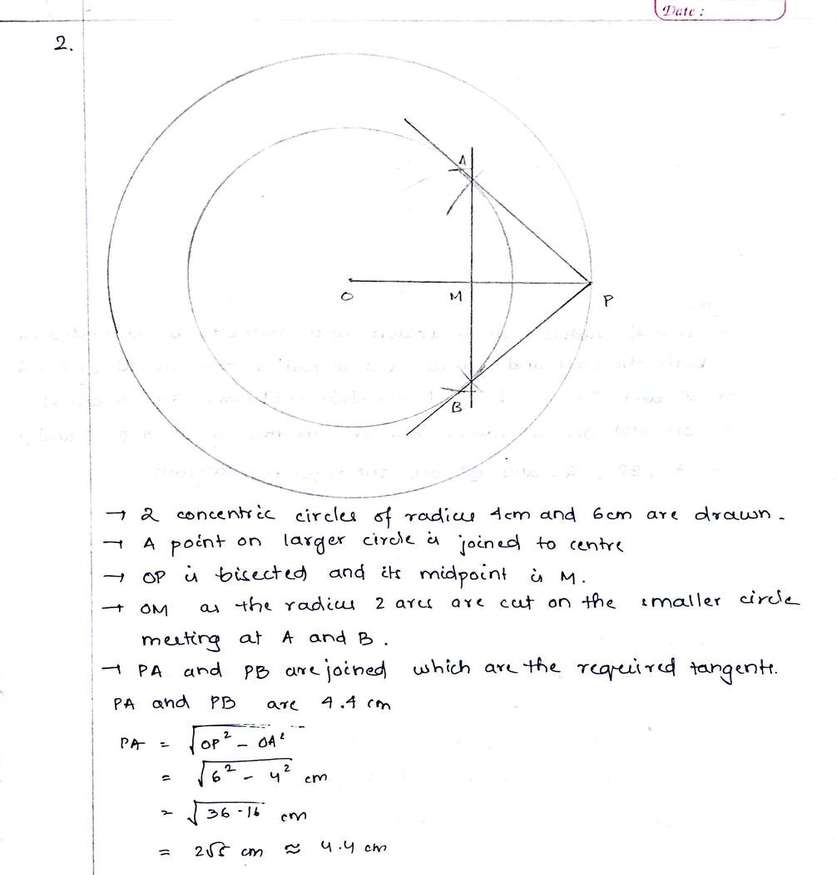 Date :
2.
A
O M P
B
→ 2 concentric circles of radius 4cm and 6cm are drawn.
→ A point on larger circle is joined to centre
→ OP is bisected and its midpoint is M.
→ OM as the radius 2 arcs are cut on the smaller circle
meeting at A and B.
→ PA and PB are joined which are the required tangents.
PA and PB are 4.4 cm
PA = √OP² - OA²
= √6² - 4² cm
= √36-16 cm
= 2√5 cm ≈ 4.4 cm